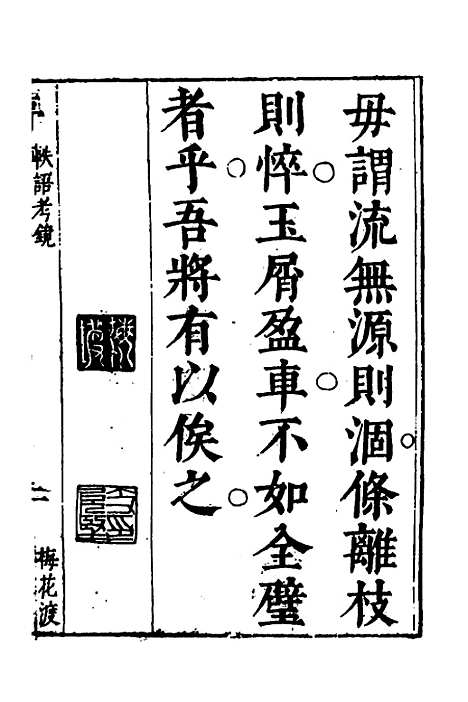 毋謂流無源則涸條離枝
則悴玉屑盈車不如全璧
者乎吾將有以俟之
軼語考鏡
梅花渡